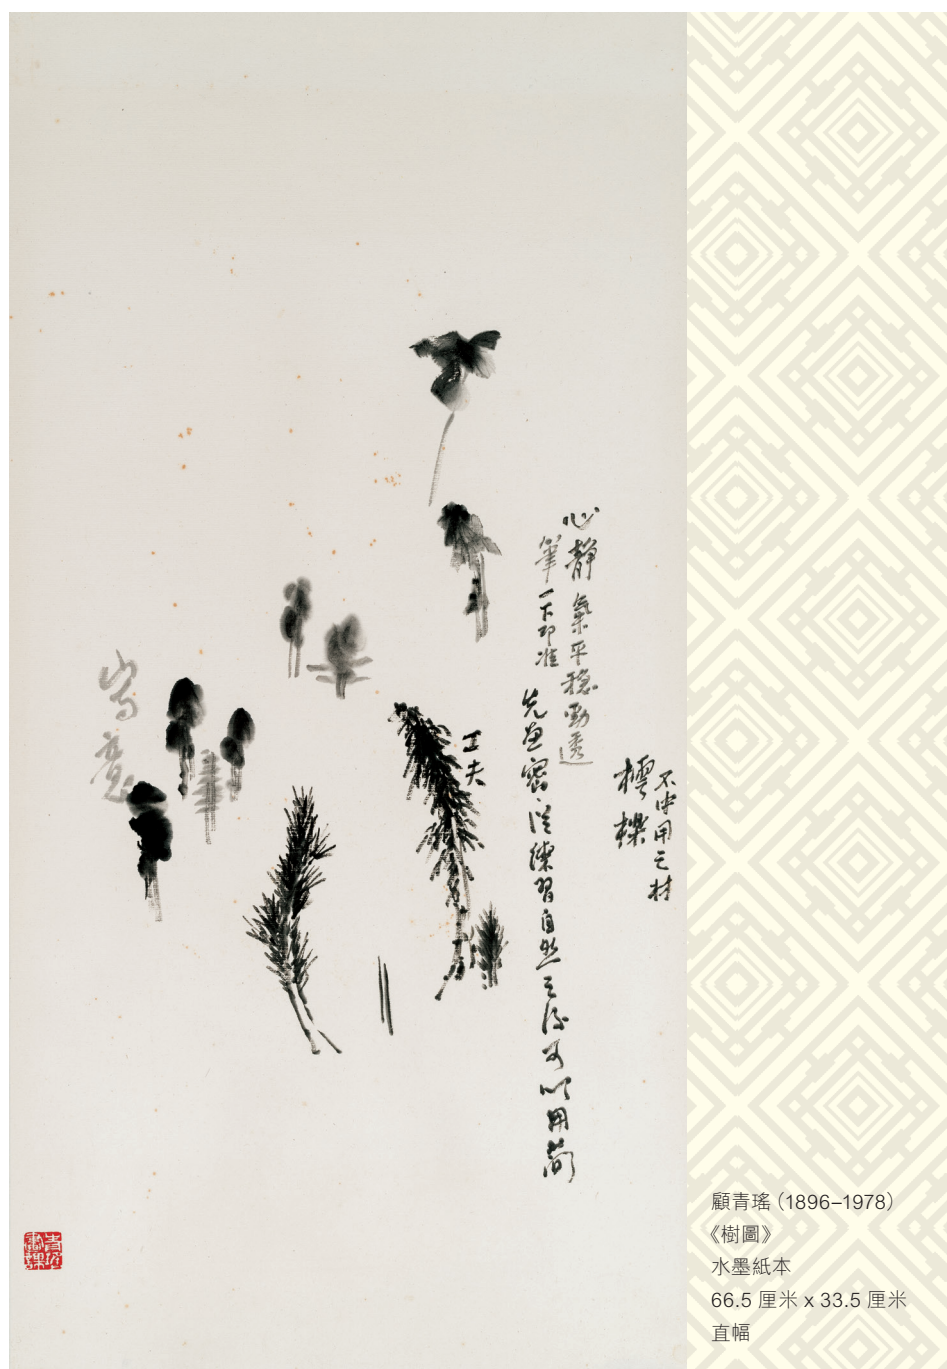 不中用之材
樗櫟
心靜氣平穩勁透
筆一下即准
先畫密從練習自然之後可以用簡
工夫
寫意
顧青瑤（1896–1978）
《樹圖》
水墨紙本
66.5 厘米 x 33.5 厘米
直幅